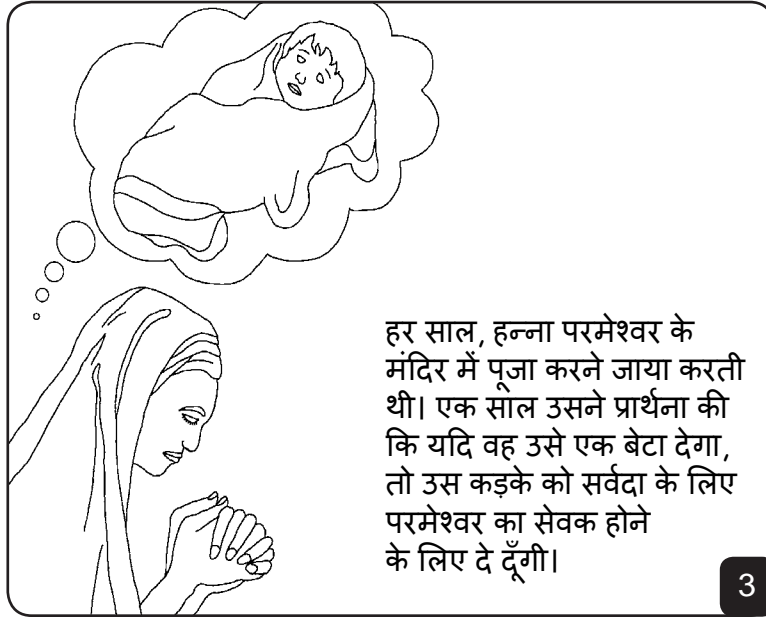 हर साल, हन्ना परमेश्वर के
मंदिर में पूजा करने जाया करती
थी। एक साल उसने प्रार्थना की
कि यदि वह उसे एक बेटा देगा,
तो उस कड़के को सर्वदा के लिए
परमेश्वर का सेवक होने
के लिए दे दूँगी।
3